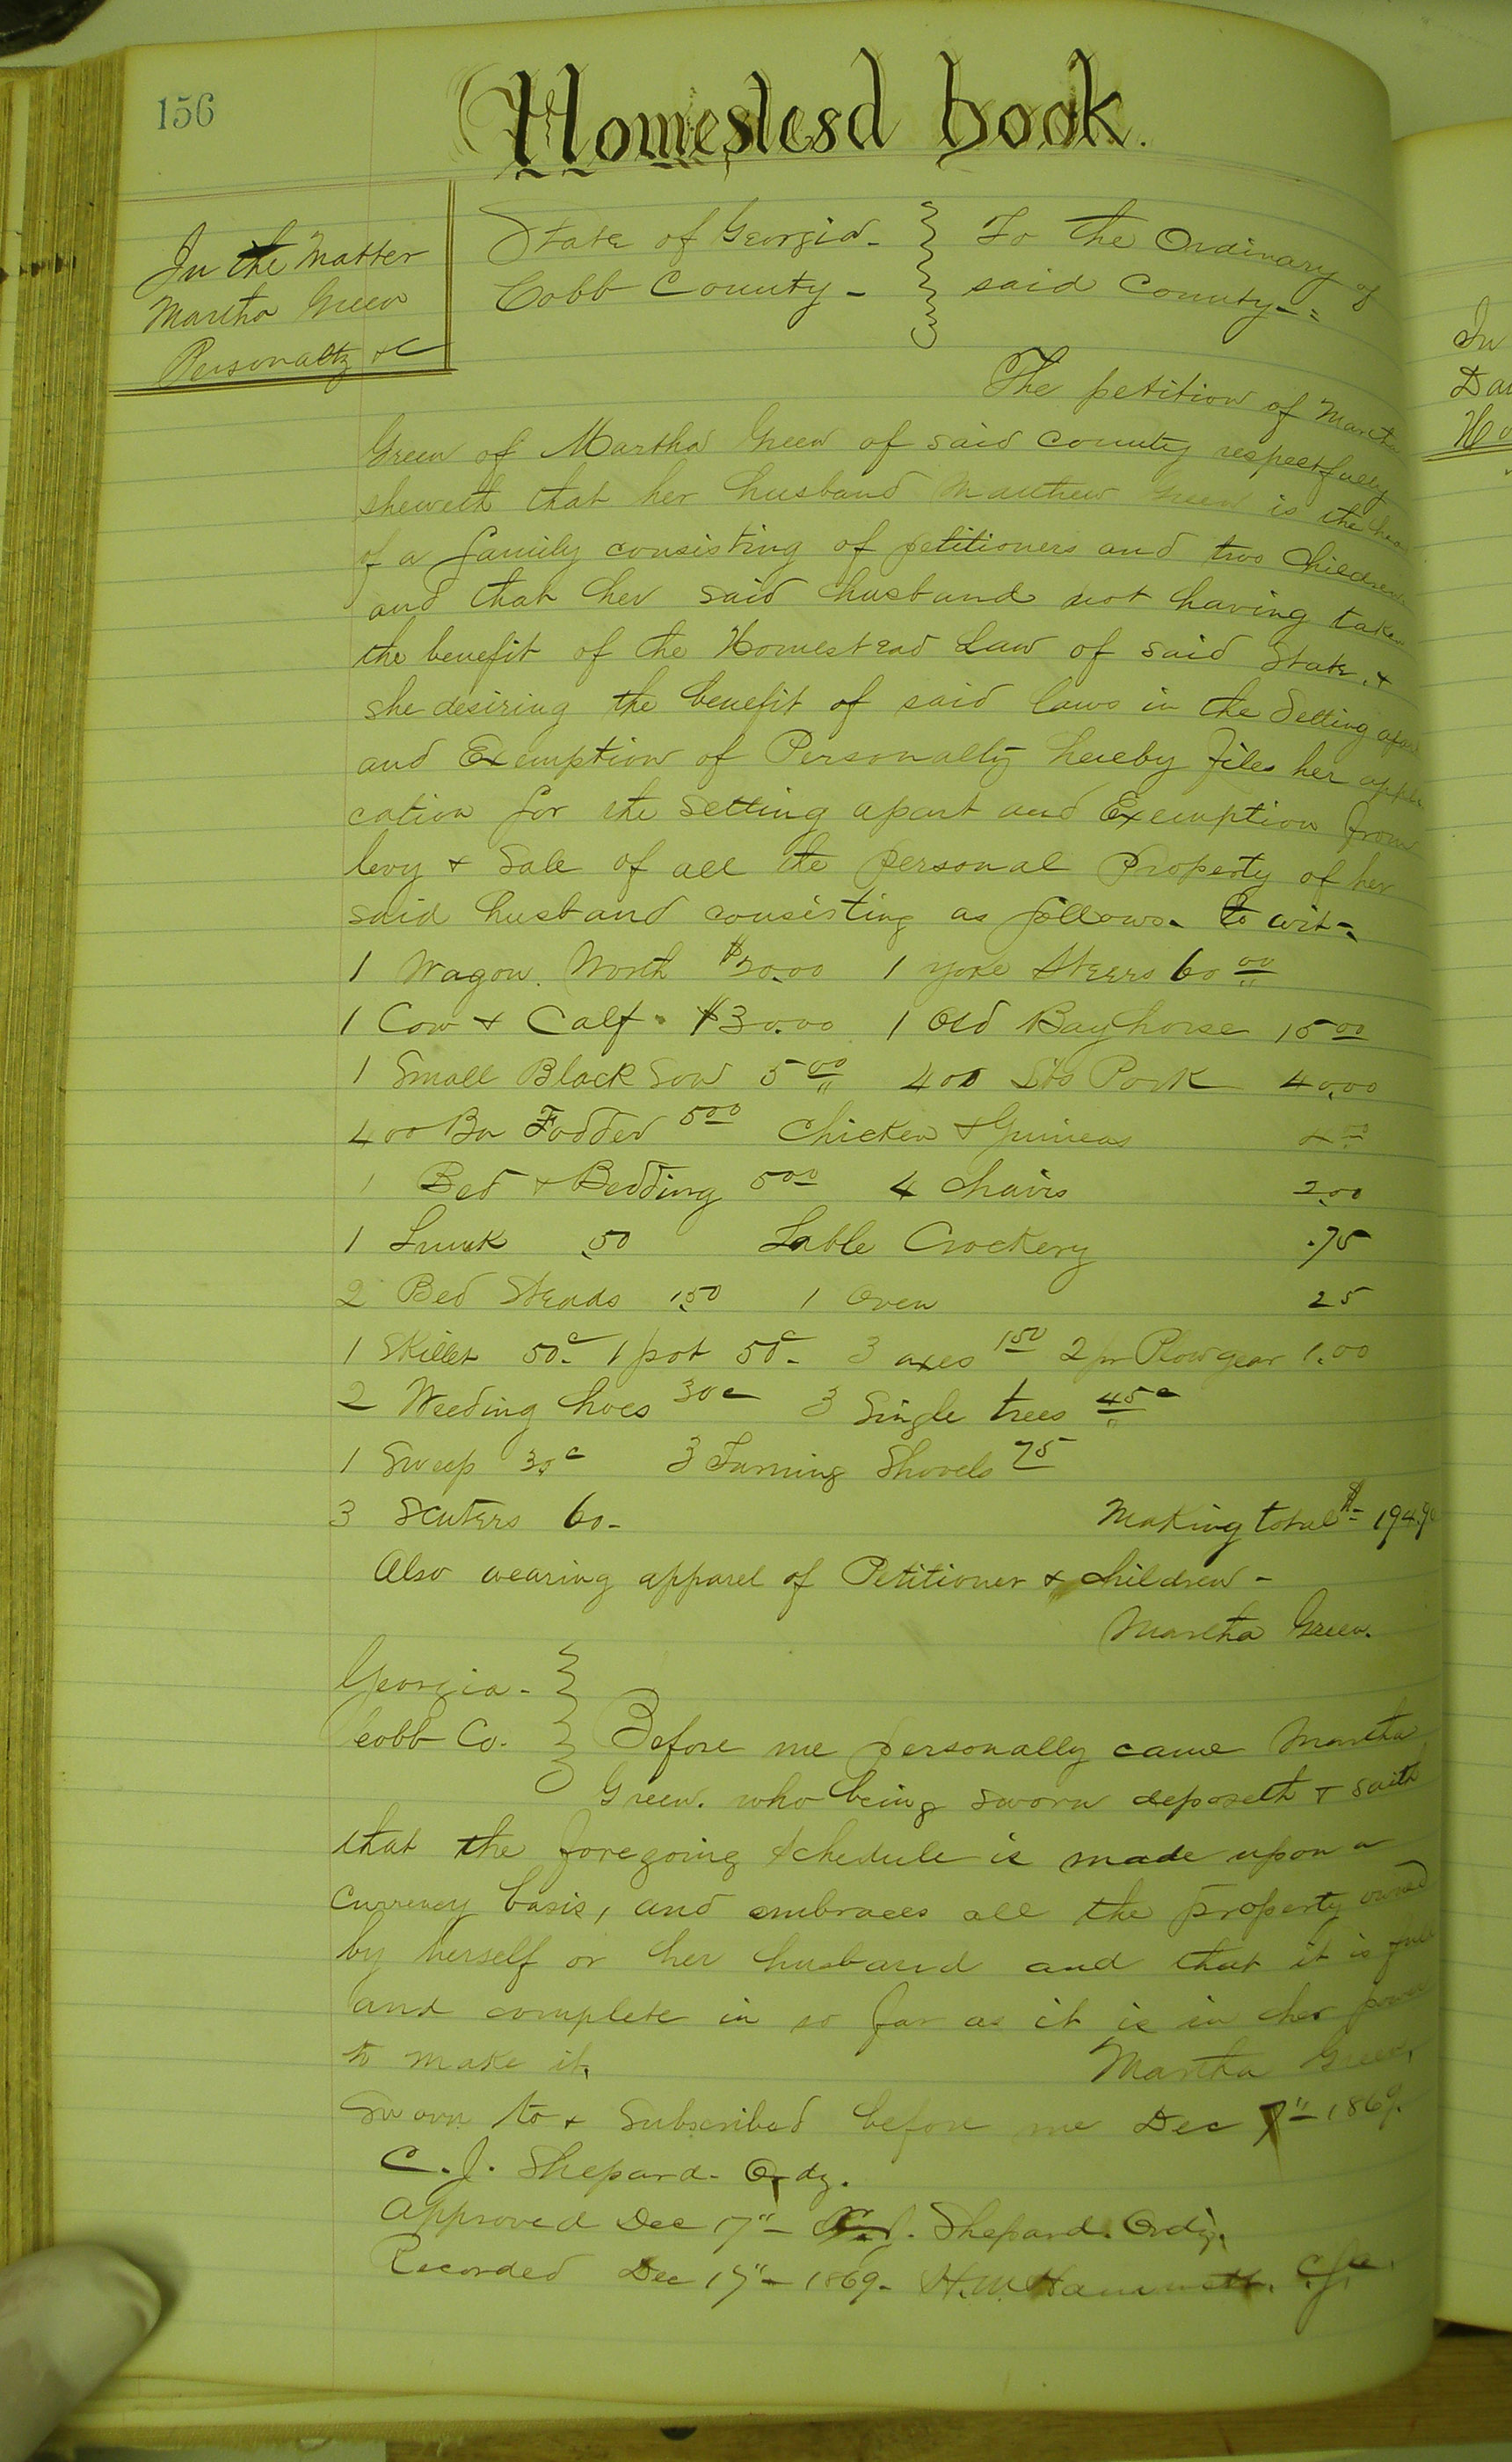 156
Homestesd book.
In the Matter
Martha Green
Personalty &C
State of Georgia - To the Ordinary of
Cobb County - said County - =
The petition of Martha
Green of Martha Green of said County respectfully
sheweth that her husband Matthew Green is the head
of a family consisting of petitioners and two Children
and that her said husband not having taken
the benefit of the Homestead Law of said State, &
she desiring the benefit of said laws in the Setting apart
and Exemption of Personalty hereby files her appli
cation for the setting apart and Exemption from
levy & Sale of all the personal Property of her
said husband consisting as follows - to wit -
1 Wagon. Worth $30.00 1 yoke Steers 60 00
1 Cow & Calf - $30.00 1 Old Bay horse 15 00
1 Small Black Sow 5 00 400 lbs Pork 40.00
400 Bn Fodder 5 00 Chicken & Guineas
1 Bed & Bedding 5 00 4 Chairs 2.00
1 Trunk .50 Table Crockery .75
2 Bed Steads 1.50 1 Oven 25
1 Skillet 50c 1 pot 50c - 3 axes 1 50 2 pr Plow gear 1.00
2 Weeding hoes 30c 3 Single trees 45c
1 Sweep 30c 3 Turning Shovels 75
3 Scuters 60 - Making total $ - 194.90
Also wearing apparel of Petitioner & children -
Martha Green.
Georgia -
Cobb Co. Before me personally came Martha
Green. who being sworn deposeth & saith
that the foregoing schedule is made upon a
Currency basis, and embraces all the property owned
by herself or her husband and that it is full
and complete in so far as it is in her power
to make it, Martha Green,
Sworn to & Subscribed before me Dec 7" - 1869.
C. J. Shepard - Ordy.
Approved Dec 17" - C. J. Shepard. Ordy,
Recorded Dec 17" - 1869 - H. W. Hammett.